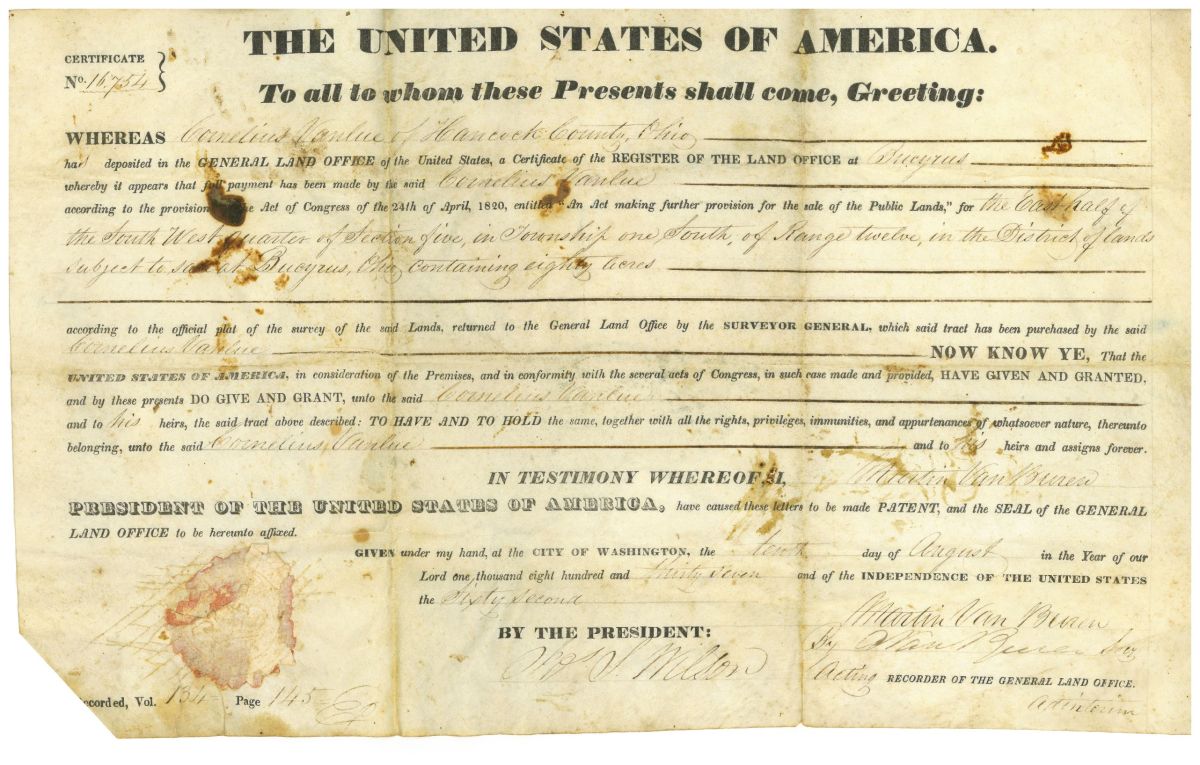 THE UNITED STATES OF AMERICA.
CERTIFICATE
No. 16,754
To all to whom these Presents shall come, Greeting:
WHEREAS Cornelius Vanlue of Hancock County, Ohio
has deposited in the GENERAL LAND OFFICE of the United States, a Certificate of the REGISTER OF THE LAND OFFICE at Bucyrus
whereby it appears that full payment has been made by the said Cornelius Vanlue
according to the provisions of the Act of Congress of the 24th of April, 1820, entitled "An Act making further provision for the sale of the Public Lands," for the East half of
the South West quarter of Section five, in Township one South, of Range twelve, in the District of lands
subject to sale at Bucyrus, Ohio, containing eighty acres
according to the official plat of the survey of the said Lands, returned to the General Land Office by the SURVEYOR GENERAL, which said tract has been purchased by the said
Cornelius Vanlue NOW KNOW YE, That the
UNITED STATES OF AMERICA, in consideration of the Premises, and in conformity with the several acts of Congress, in such case made and provided, HAVE GIVEN AND GRANTED,
and by these presents DO GIVE AND GRANT, unto the said Cornelius Vanlue
and to his heirs, the said tract above described: TO HAVE AND TO HOLD the same, together with all the rights, privileges, immunities, and appurtenances of whatsoever nature, thereunto
belonging, unto the said Cornelius Vanlue and to his heirs and assigns forever.
IN TESTIMONY WHEREOF, I, Martin Van Buren
PRESIDENT OF THE UNITED STATES OF AMERICA, have caused these letters to be made PATENT, and the SEAL of the GENERAL
LAND OFFICE to be hereunto affixed.
GIVEN under my hand, at the CITY OF WASHINGTON, the tenth day of August in the Year of our
Lord one thousand eight hundred and thirty seven and of the INDEPENDENCE OF THE UNITED STATES
the Sixty Second
BY THE PRESIDENT: Martin Van Buren
By A Van Buren Secy
S. Wilson
Acting RECORDER OF THE GENERAL LAND OFFICE.
ad interim
ecorded, Vol. 134 Page 145